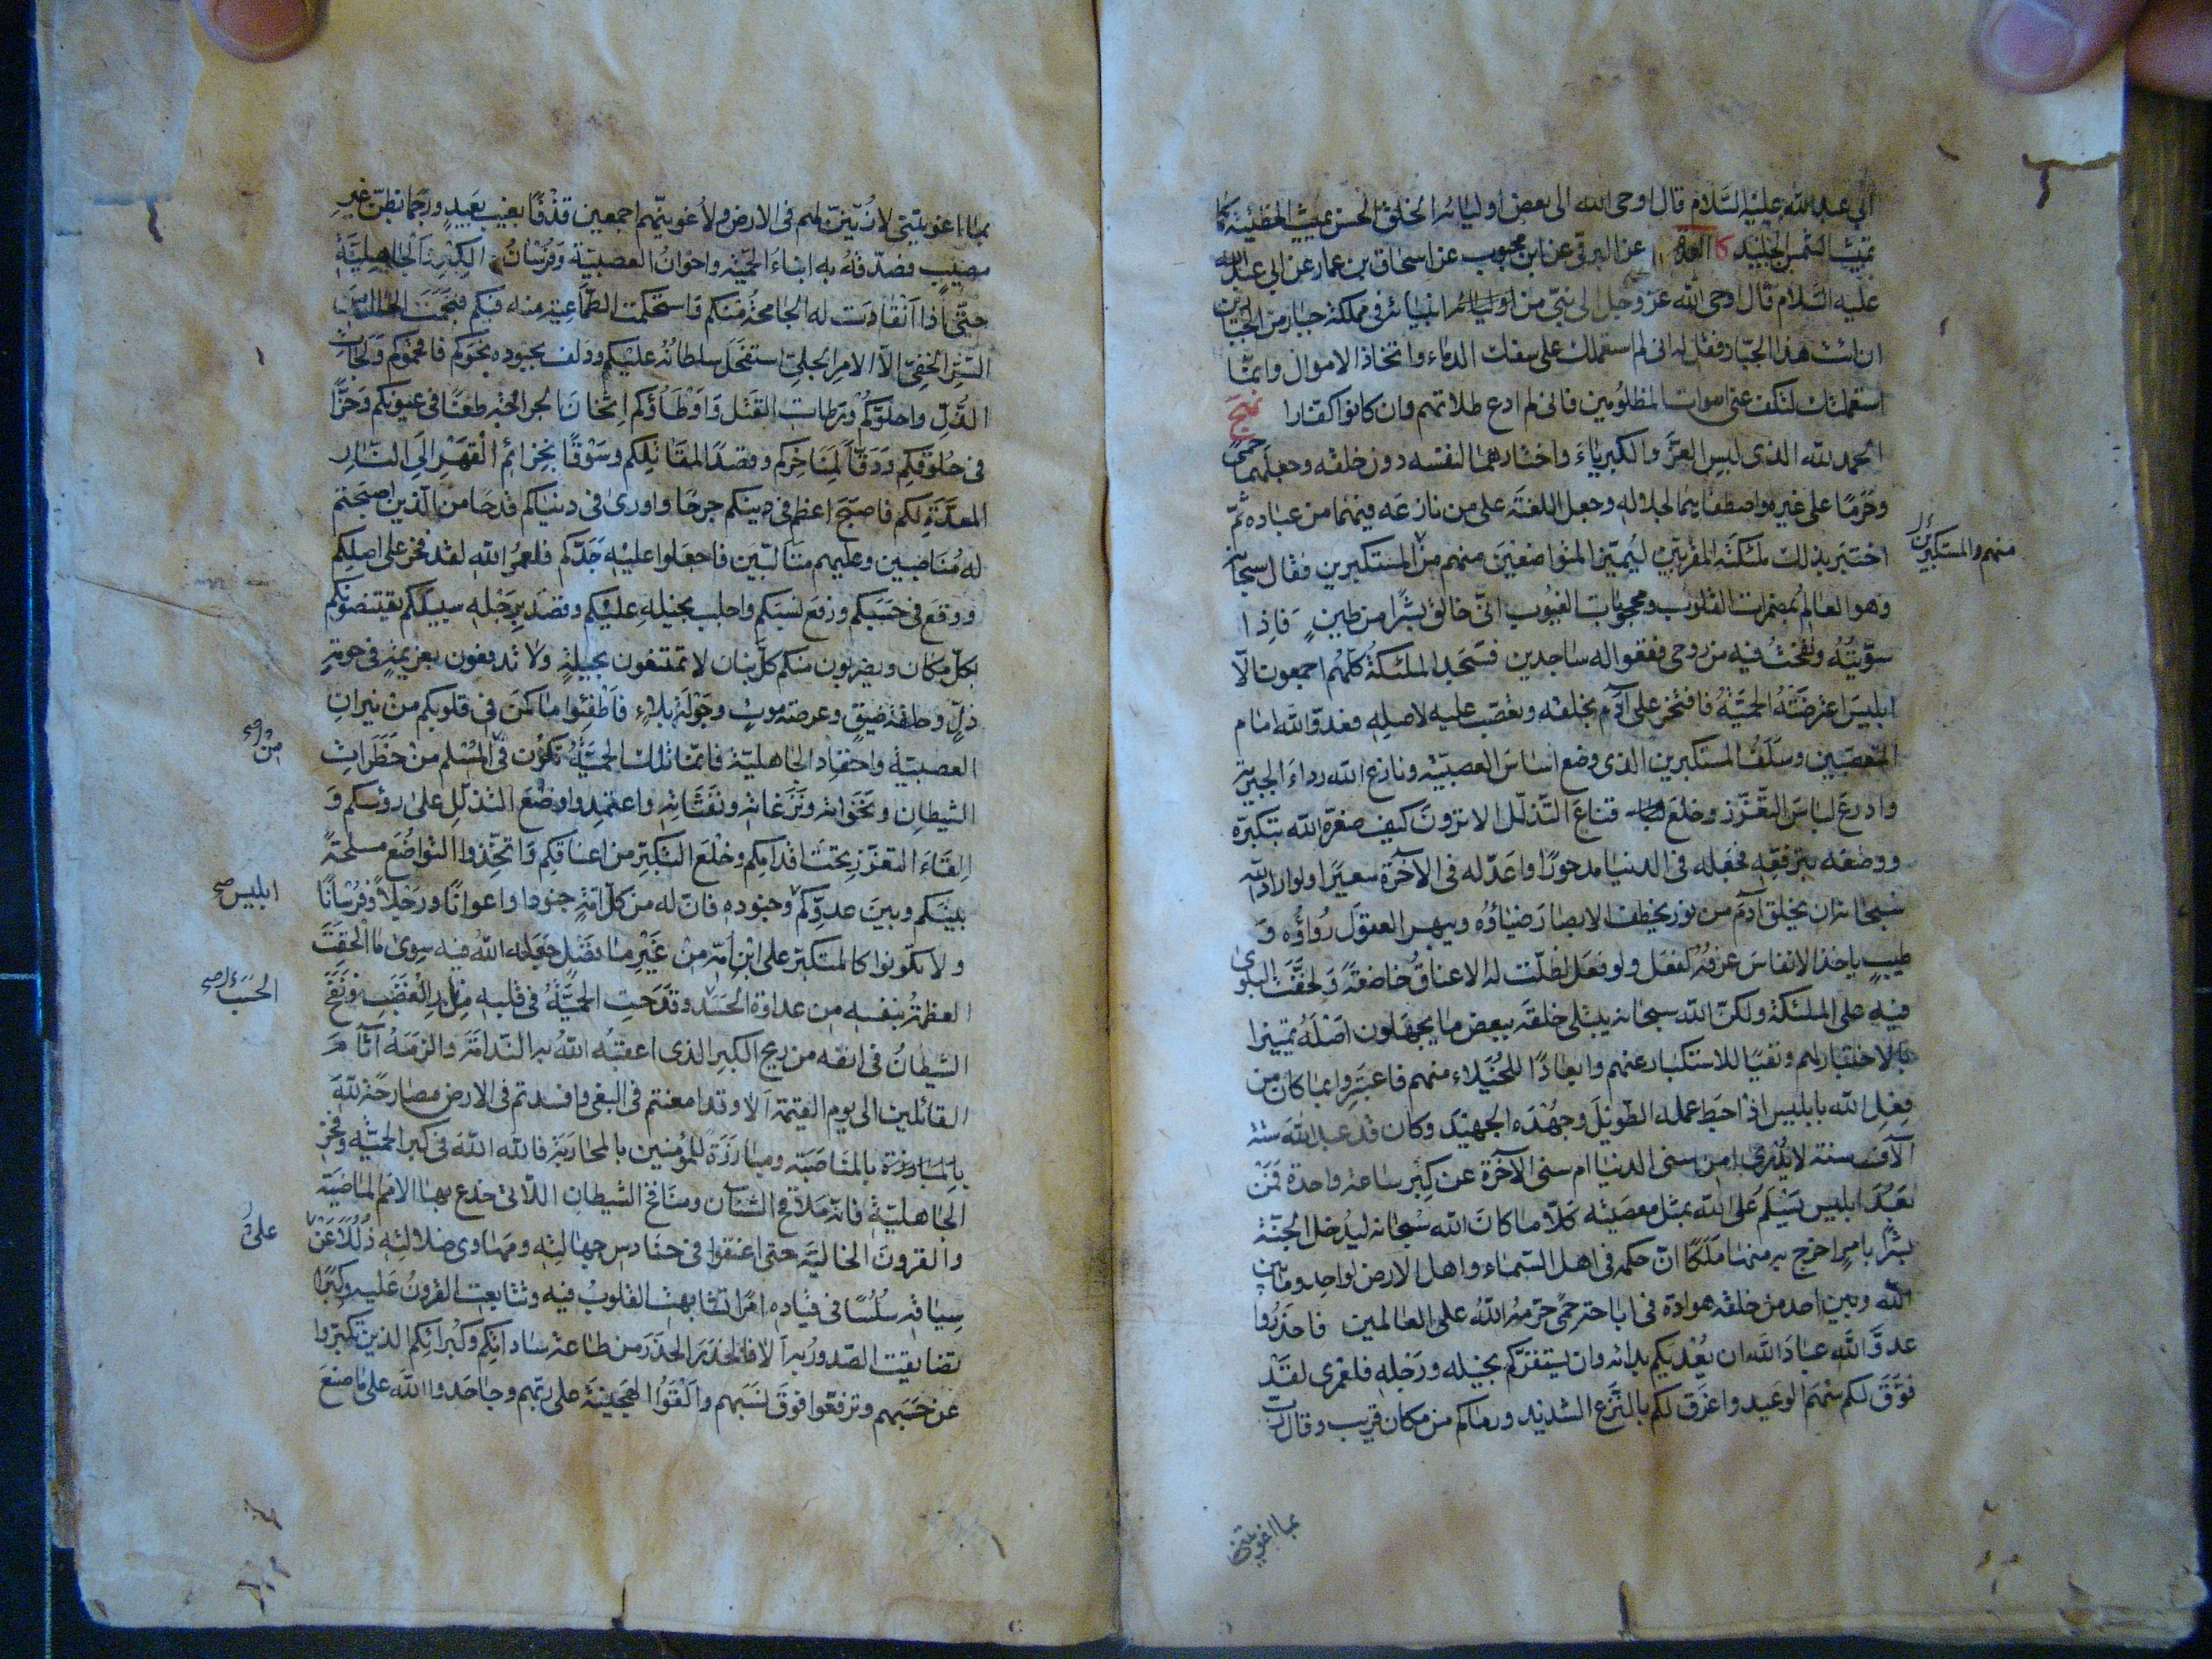 ابي عبد الله عليه السلام قال اوحى الله الى بعض اوليائه الخلق الحسن يميث الخطيئة كما
تميث الشمس الجليد كا العدة عن البرقي عن ابن محبوب عن اسحاق بن عمار عن ابي عبد الله
عليه السلام قال اوحى الله عز وجل الى نبي من انبيائه في مملكة جبار من الجبارين
ان ائت هذا الجبار فقل له اني لم استعملك على سفك الدماء واتخاذ الاموال وانما
استعملتك لتكف عني اصوات المظلومين فاني لم ادع ظلامتهم وان كانوا كفارا نهج
الحمد لله الذي لبس العز والكبرياء واختارهما لنفسه دون خلقه وجعلهما حمى
وحرما على غيره واصطفاهما لجلاله وجعل اللعنة على من نازعه فيهما من عباده ثم
اختبر بذلك ملئكته المقربين ليميز المتواضعين منهم من المستكبرين فقال سبحانه
منهم والمستكبرين
وهو العالم بمضمرات القلوب ومحجوبات الغيوب اني خالق بشرا من طين فاذا
سويته ونفخت فيه من روحي فقعوا له ساجدين فسجد الملئكة كلهم اجمعون الا
ابليس اعترضته الحمية فافتخر على آدم بخلقه وتعصب عليه لاصله فعدو الله امام
المتعصبين وسلف المستكبرين الذي وضع اساس العصبية ونازع الله رداء الجبرية
وادرع لباس التعزز وخلع قناع التذلل الا ترون كيف صغره الله بتكبره
ووضعه بترفعه فجعله في الدنيا مدحورا واعد له في الآخرة سعيرا ولو اراد الله
سبحانه ان يخلق آدم من نور يخطف الابصار ضياؤه ويبهر العقول رواؤه و
طيب ياخذ الانفاس عرفه لفعل ولو فعل لظلت له الاعناق خاضعة ولخفت البلوى
فيه على الملئكة ولكن الله سبحانه يبتلي خلقه ببعض ما يجهلون اصله تمييزا
بالاختبار لهم ونفيا للاستكبار عنهم وابعادا للخيلاء منهم فاعتبروا بما كان من
فعل الله بابليس اذ احبط عمله الطويل وجهده الجهيد وكان قد عبد الله ستة
آلاف سنة لا يدرى امن سني الدنيا ام سني الآخرة عن كبر ساعة واحدة فمن
بعد ابليس يسلم على الله بمثل معصيته كلا ما كان الله سبحانه ليدخل الجنة
بشرا بامر اخرج به منها ملكا ان حكمه في اهل السماء واهل الارض لواحد وما بين
الله وبين احد من خلقه هوادة في اباحة حمى حرمه الله على العالمين فاحذروا
عدو الله عباد الله ان يعديكم بدائه وان يستفزكم بخيله ورجله فلعمري لقد
فوق لكم سهم الوعيد واغرق لكم بالنزع الشديد ورماكم من مكان قريب وقال رب
بما اغويتني
بما اغويتني لازينن لهم في الارض ولاغوينهم اجمعين قذفا بغيب بعيد ورجما بظن غير
مصيب فصدقه به ابناء الحمية واخوان العصبية وفرسان الكبر والجاهلية
حتى اذا انقادت له الجامحة منكم واستحكمت الطماعية منه فيكم فنجمت الحال من
السر الخفي الى الامر الجلي استفحل سلطانه عليكم ودلف بجنوده نحوكم فاقحموكم ولجات
الذل واحلوكم ورطات القتل واوطأوكم اثخان الجراحة طعنا في عيونكم وحزا
في حلوقكم ودقا لمناخركم وقصدا لمقاتلكم وسوقا بخزائم القهر الى النار
المعدة لكم فاصبح اعظم في دينكم جرحا واورى في دنياكم قدحا من الذين اصبحتم
له مناصبين وعليهم متألبين فاجعلوا عليه جدكم فلعمر الله لقد فخر على اصلكم
ووقع في حسبكم ودفع نسبكم واجلب بخيله عليكم وقصد برجله سبيلكم يقتنصونكم
بكل مكان ويضربون منكم كل بنان لا تمتنعون بحيلة ولا تدفعون بعزيمة في حومة
ذل وحلقة ضيق وعرصة موت وجولة بلاء فاطفئوا ما كمن في قلوبكم من نيران
العصبية واحقاد الجاهلية فانما تلك الحمية تكون في المسلم من خطرات
الشيطان ونخواته ونزغاته ونفثاته واعتمدوا وضع التذلل على رؤسكم و
القاء التعزز تحت اقدامكم وخلع التكبر من اعناقكم واتخذوا التواضع مسلحة
بينكم وبين عدوكم وجنوده فان له من كل امة جنودا واعوانا ورجلا وفرسانا
ابليس صح
ولا تكونوا كالمتكبر على ابن امه من غير ما فضل جعله الله فيه سوى ما الحقت
العظمة بنفسه من عداوة الحسد وقدحت الحمية في قلبه من نار الغضب ونفخ
الحسب صح
الشيطان في انفه من ريح الكبر الذي اعقبه الله به الندامة والزمه آثام
القاتلين الى يوم القيمة الا وقد امعنتم في البغي وافسدتم في الارض مصارحة لله
بالمناصبة ومبارزة للمؤمنين بالمحاربة فالله الله في كبر الحمية وفخر
الجاهلية فانه ملاقح الشنآن ومنافخ الشيطان اللاتي خدع بها الامم الماضية
والقرون الخالية حتى اعنقوا في حنادس جهالته ومهاوي ضلالته ذللا عن
سياقه سلسا في قياده امرا تشابهت القلوب فيه وتتابعت القرون عليه وكبرا
تضايقت الصدور به الا فالحذر الحذر من طاعة ساداتكم وكبرائكم الذين تكبروا
عن حسبهم وترفعوا فوق نسبهم والقوا الهجينة على ربهم وجاحدوا الله على ما صنع